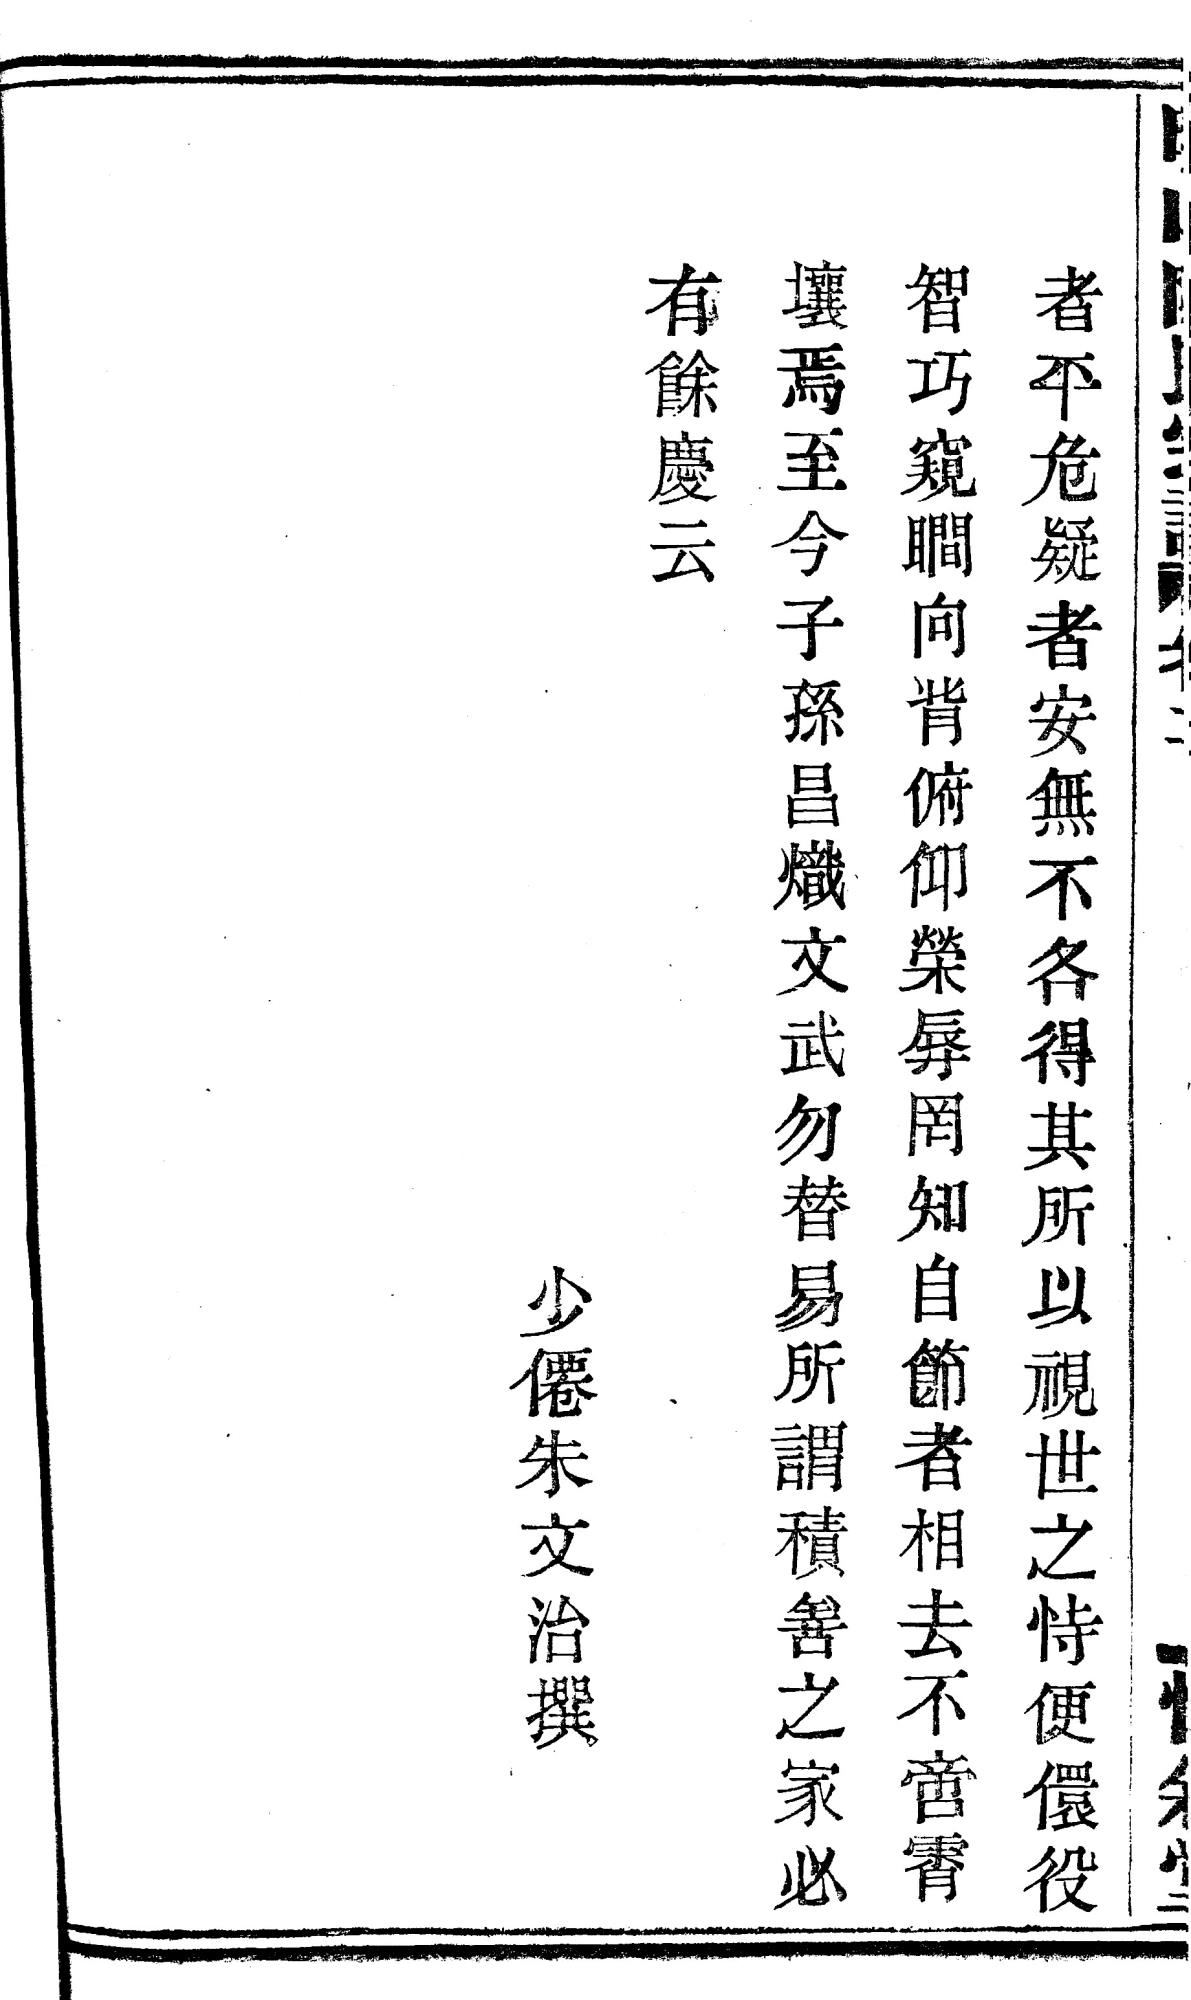 者平危疑者安無不各得其所以視世之恃便儇役
智巧窺瞷向背俯仰榮辱罔知自節者相去不啻霄
壤焉至今子孫昌熾文武勿替易所謂積善之家必
有餘慶云
少僊朱文治撰